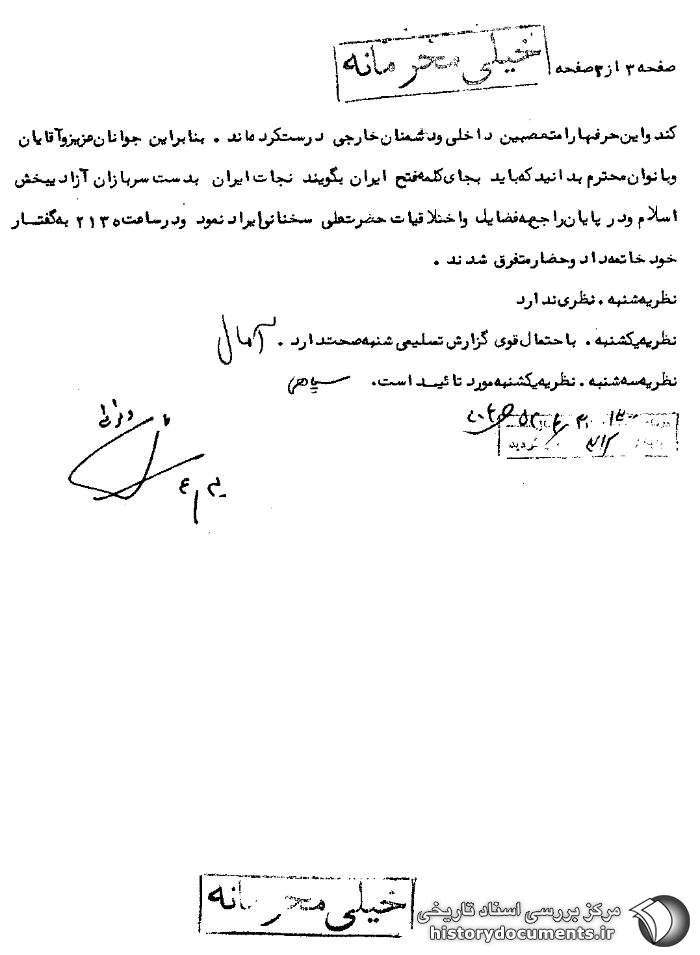 خیلی محرمانه
صفحه ۳ از ۳ صفحه
کند واین حرفهارا متعصبین داخلی ودشمنان خارجی درست کرده اند . بنابراین جوانان عزیز وآقایان
وبانوان محترم بدانید که باید بجای کلمه فتح ایران بگویند نجات ایران بدست سربازان آزادیبخش
اسلام ودر پایان راجع به فضایل واخلاقیات حضرت علی سخنانی ایراد نمود ودر ساعت ۲۱۳۵ به گفتار
خود خاتمه داد وحضار متفرق شدند .
نظریه شنبه . نظری ندارد
نظریه یکشنبه . با احتمال قوی گزارش تسلیمی شنبه صحت دارد . آمال
نظریه سه شنبه . نظریه یکشنبه مورد تائید است . سپاهی
گردید
خیلی محرمانه
مرکز بررسی اسناد تاریخی
historydocuments.ir